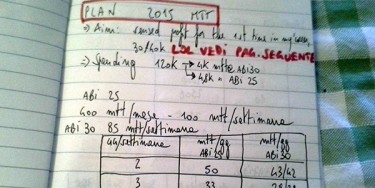 PLAN 2015 MTT
=> Aim: profit for the 1st time in my
30/40K LOL VEDI PAG. SEGUENTE
=> Spending 120K → 4K mtt ABI30
→ 4,8K = ABI 25
ABI 25
400 mtt/mese - 100 mtt/settimana
ABI 30 85 mtt/settimana
GG/settimana mtt/gg ABI 25 mtt/gg ABI 30
2 50 43/42
3 33